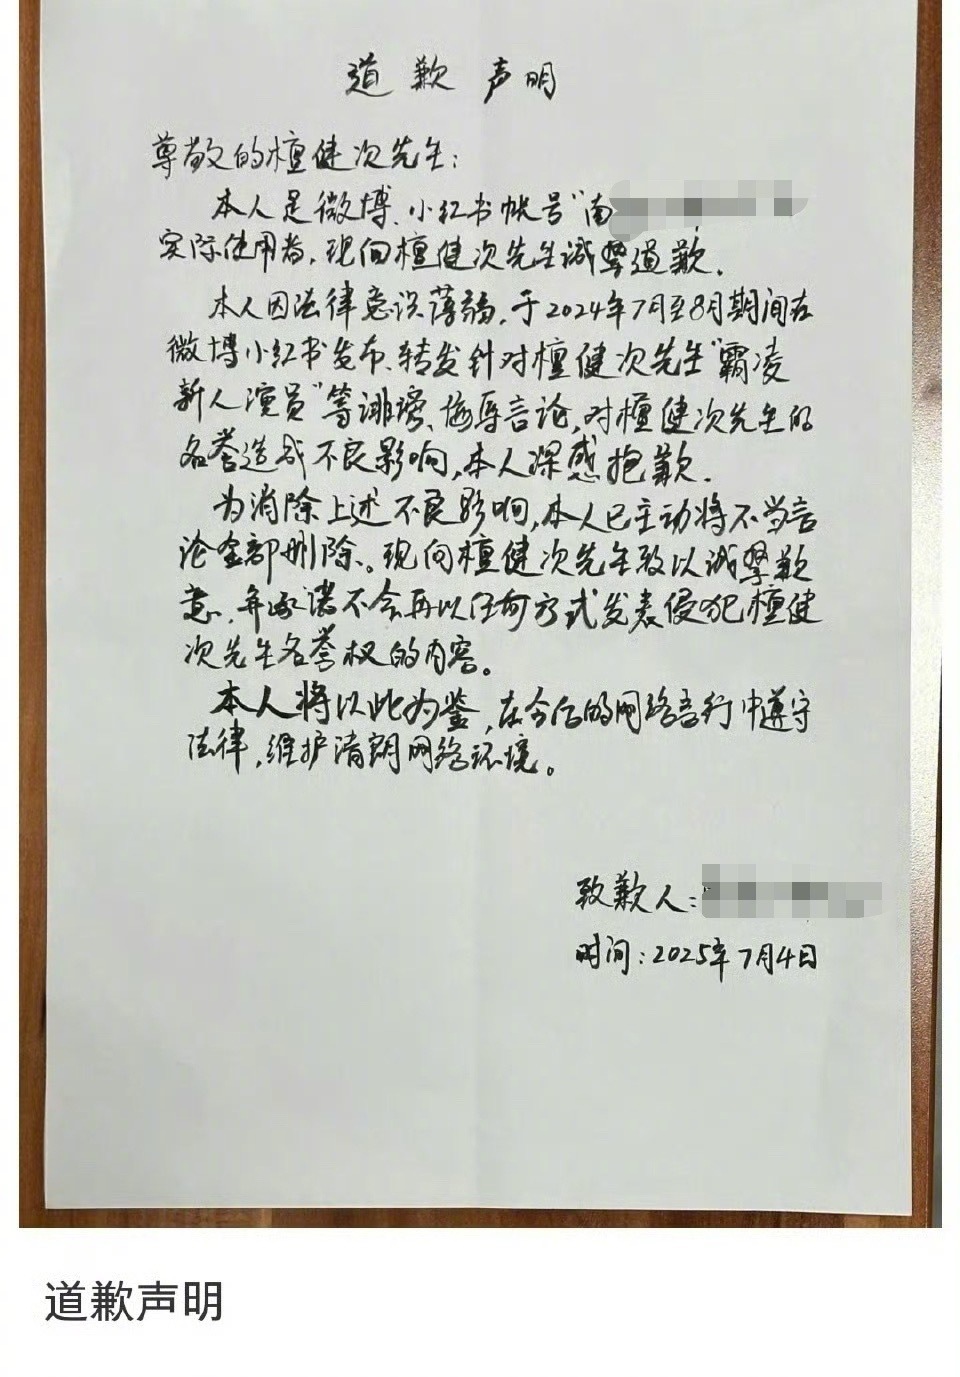 道歉声明
尊敬的檀健次先生：
本人是微博、小红书帐号“南
实际使用者，现向檀健次先生诚挚道歉．
本人因法律意识薄弱，于2024年7月至8月期间在
微博小红书发布、转发针对檀健次先生“霸凌
新人演员”等诽谤、侮辱言论，对檀健次先生的
名誉造成不良影响，本人深感抱歉．
为消除上述不良影响，本人已主动将不当言
论全部删除。现向檀健次先生致以诚挚歉
意，并承诺不会再以任何方式发表侵犯檀健
次先生名誉权的内容。
本人将以此为鉴，在今后的网络言行中遵守
法律，维护清朗网络环境。
致歉人：
时间：2025年7月4日
道歉声明